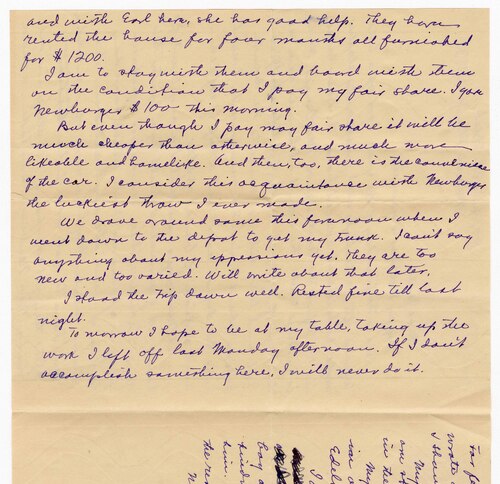 and with Earl here, she has good help. They have
rented the house for four months all furnished
for $1200.
I am to stay with them and board with them
on the condition that I pay my fair share. I gave
Newburger $100 this morning.
But even though I pay my fair share it will be
much cheaper than otherwise, and much more
likeable and homelike. And then, too, there is the convenience
of the car. I consider this acquaintance with Newburger
the luckiest throw I ever made.
We drove around some this forenoon when I
went down to the depot to get my trunk. I can't say
anything about my impressions yet. They are too
new and too varied. Will write about that later.
I stood the trip down well. Rested fine till last
night.
Tomorrow I hope to be at my table, taking up the
work I left off last Monday afternoon. If I don't
accomplish something here, I will never do it.
For f
wrote
I sha
My
om s
in the
My
in a
Edel
I
boy a
kinde
him.
the re
N